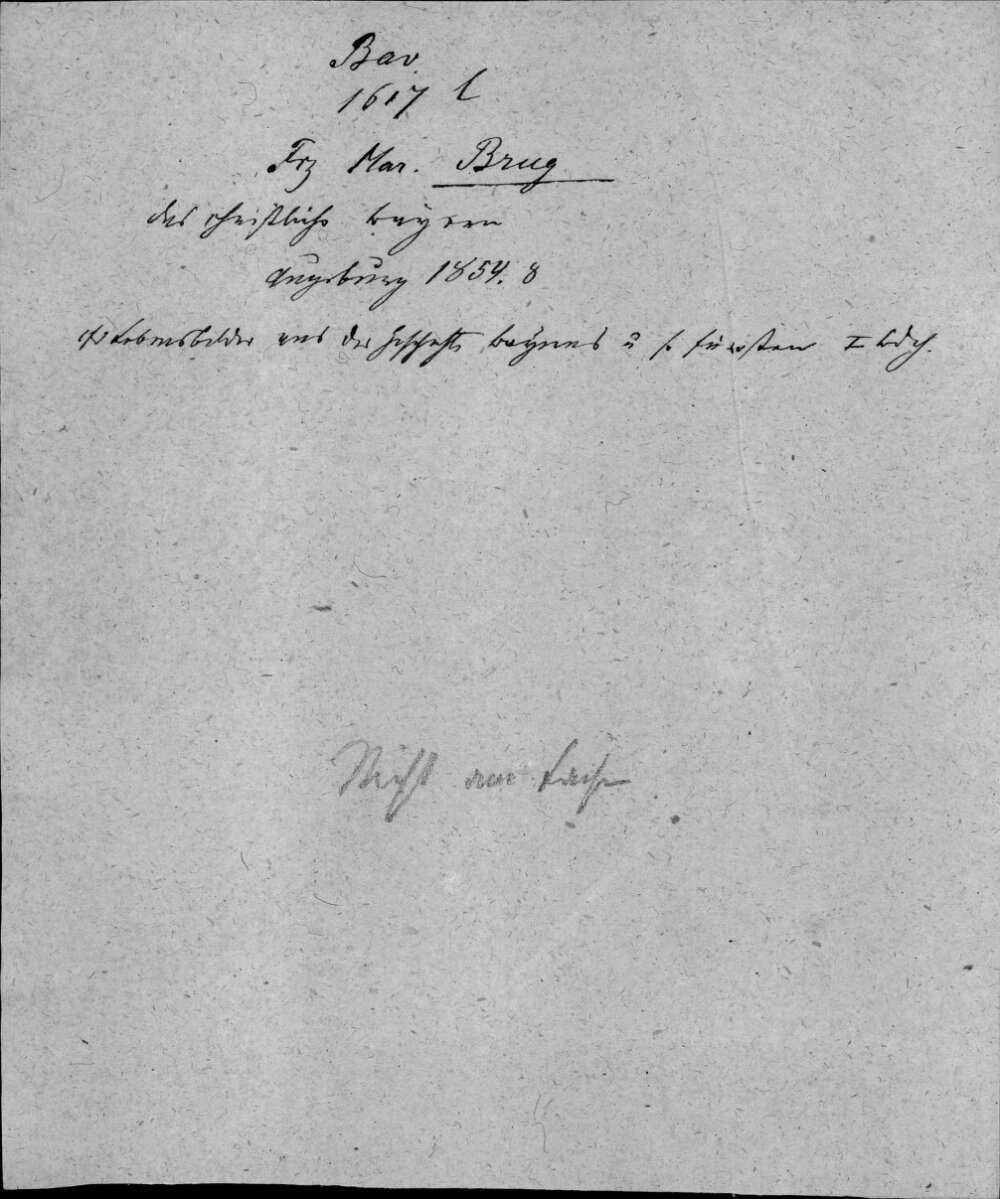 Bav.
1617 l
Frz Mar. Brug
das christliche Bayern
Augsburg 1854. 8
Lebensbilder aus der Geschichte Bayerns u. s. Fürsten I Bdch.
Nicht am